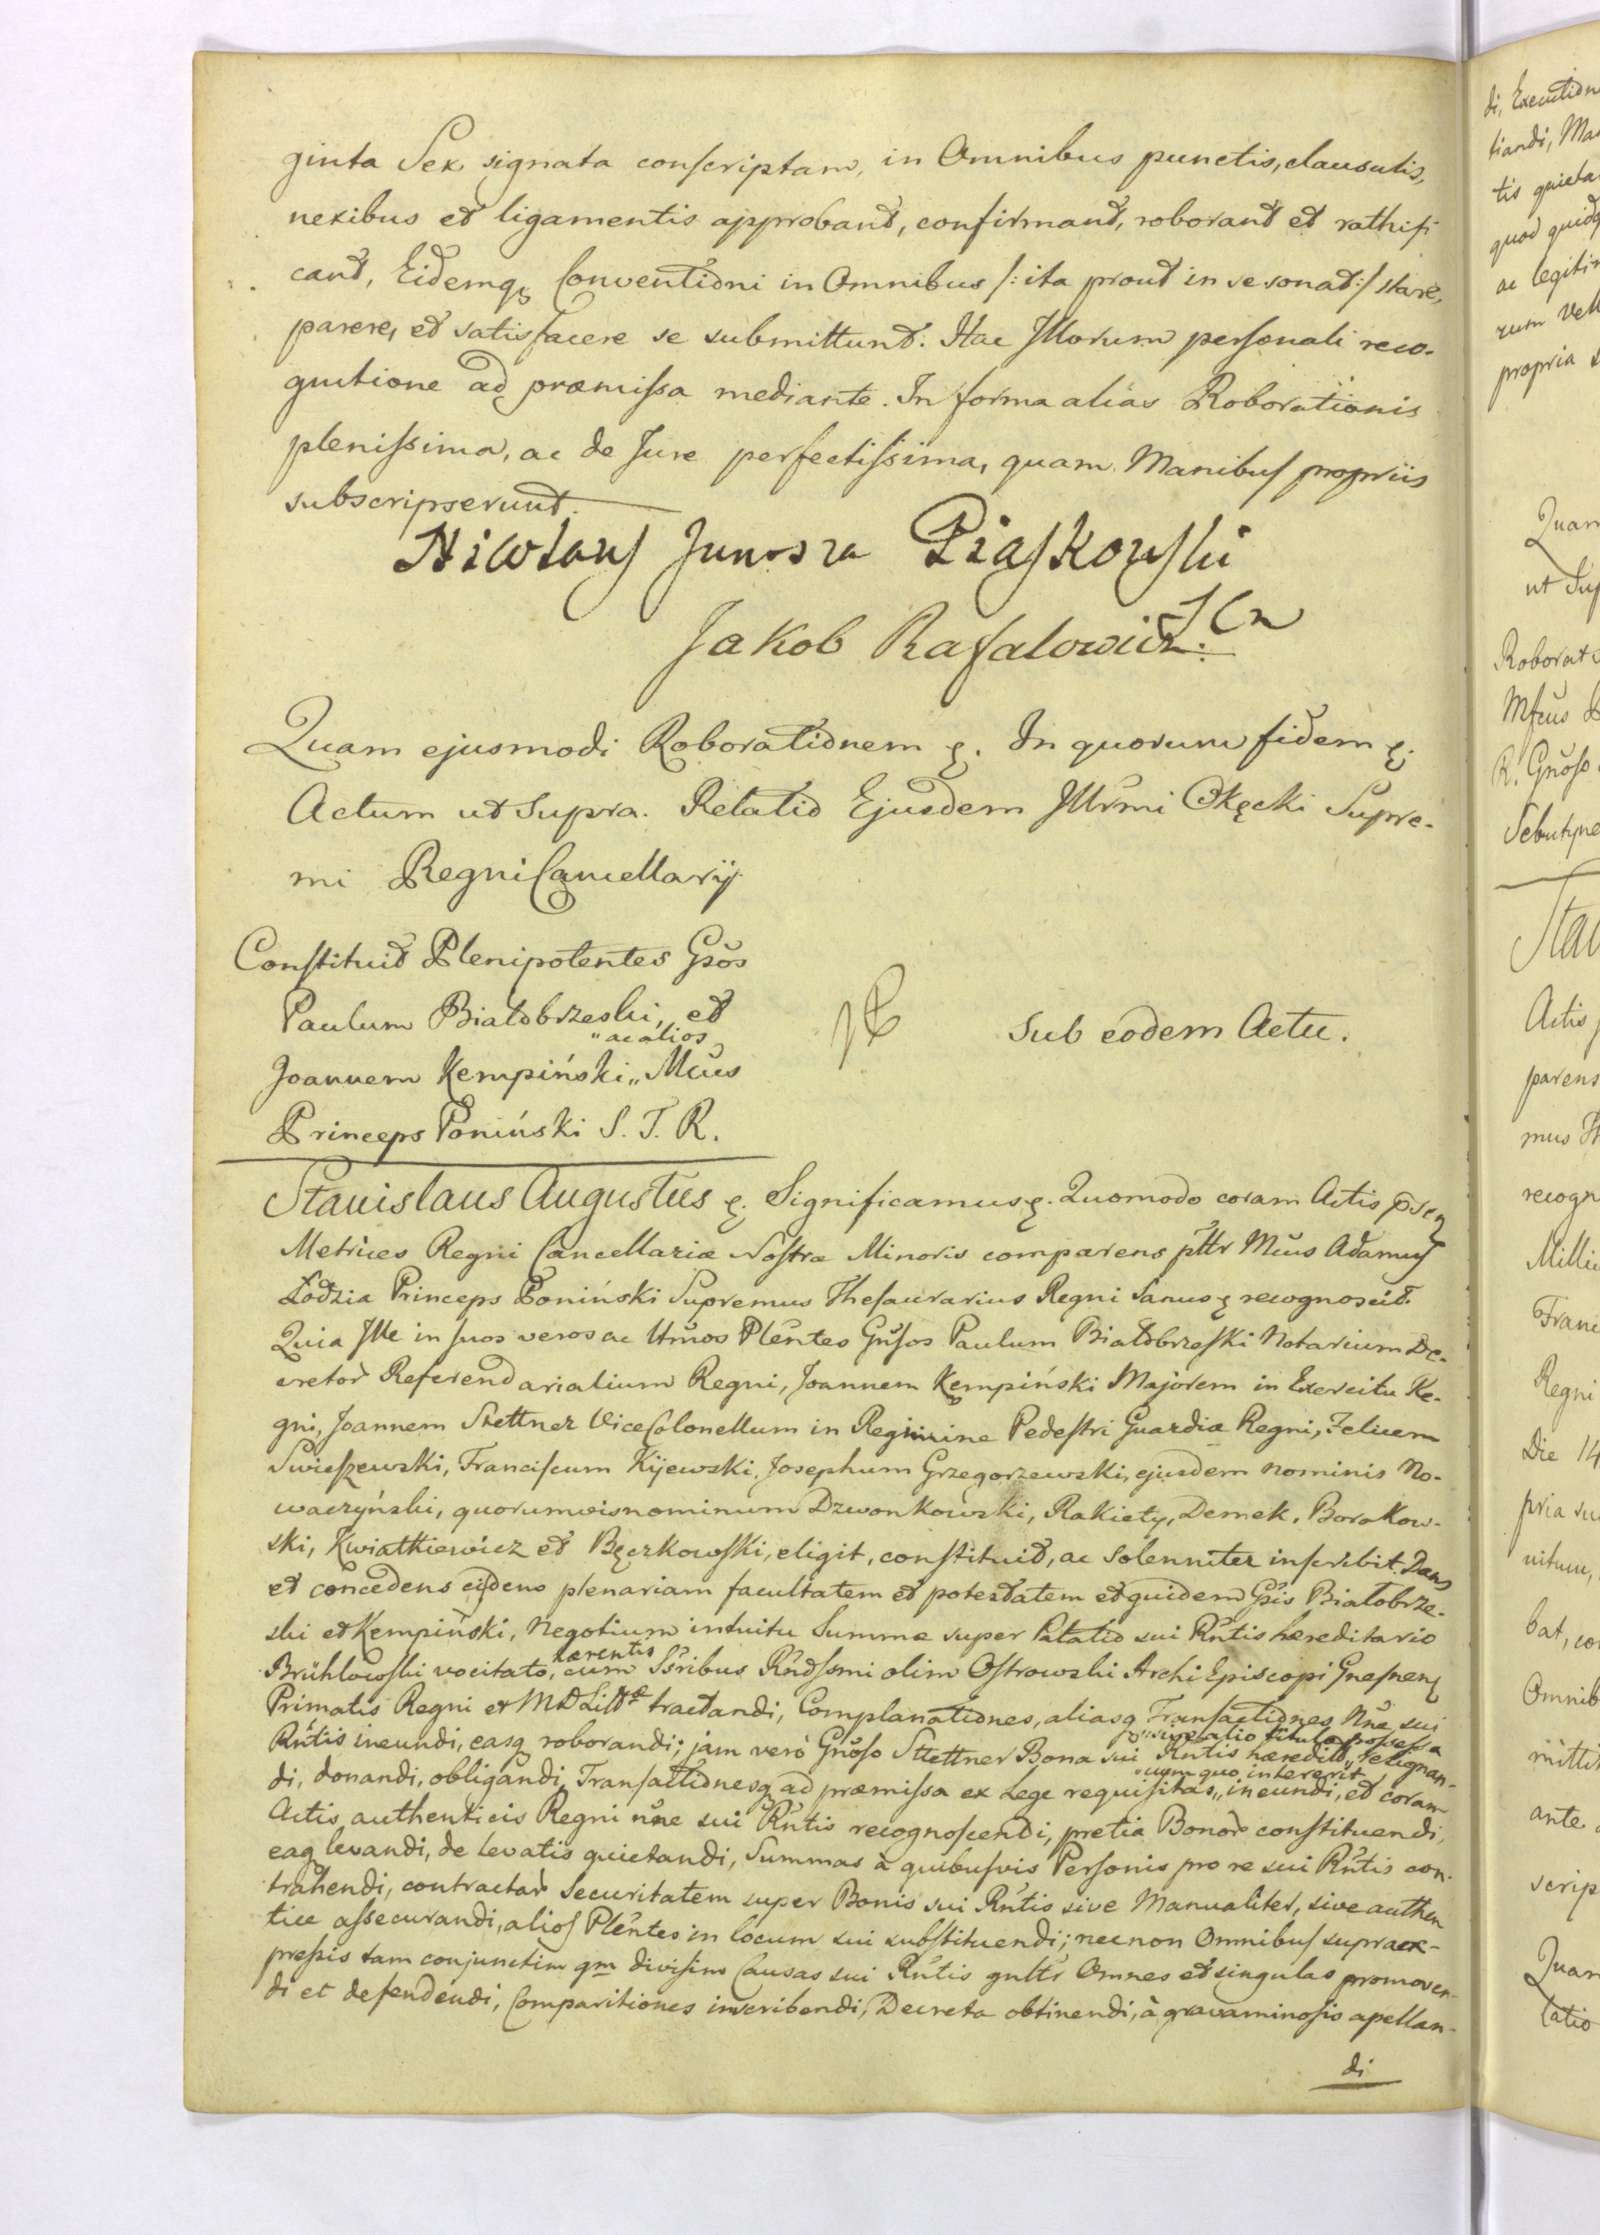 ginta Sex signata conscriptam, in Omnibus punctis, clausulis,
nexibus et ligamentis approbant, confirmant, roborant et rathifi
cant, Eidemq Conventioni in Omnibus /: ita prout in se sonat :/ stare,
parere, et satisfacere se submittunt. Hac Illorum personali reco-
gnitione ad præmissa mediante. In forma alias Roborationis
plenissima, ac de Jure perfectissima, quam Manibus propriis
subscripserunt.
Nicolaus Junosza Piaskowski
Jakob Rafalowicz
Quam ejusmodi Roborationem &. In quorum fidem &.
Actum ut Supra. Relatio Ejusdem Illrmi Okęcki Supre-
mi Regni Cancellarij
Constituit Plenipotentes Gsos
Paulum Białobrzeski, et
„ac alios
Joannem Kempiński„ Mcus
Princeps Poniński S. T. R.
Sub eodem Actu.
Stanislaus Augustus &. Significamus &. Quomodo coram Actis
Metrices Regni Cancellariæ Nostræ Minoris comparens pttr Mcus Adamus
Łodzia Princeps Poniński Supremus Thesaurarius Regni Sanus & recognoscit.
Quia Ille in suos veros ac Plentes Gnsos Paulum Białobrzeski Notarium De-
cretor Referendarialium Regni, Joannem Kempiński Majorem in Exercitu Re-
gni, Joannem Stettner ViceColonellum in Regimine Pedestri Guardiæ Regni, Felicem
Swieszewski, Franciscum Kijewski, Josephum Grzegorzewski, ejusdem nominis No-
waczyński, quorumvis nominum Dzwonkowski, Rakiety, Demek, Borakow-
ski, Kwiatkiewicz et Bęczkowski, eligit, constituit, ac Solenniter inscribit. Dans
et concedens eisdem plenariam facultatem et potestatem et quidem Gsis Białobrze-
ski et Kempiński, Negotium intuitu Summæ super Palatio sui Rntis hæreditario
hærentis
Brühlowski vocitato, cum Ssribus Rndssmi olim Ostrowski Archi Episcopi Gnesnen
Primatis Regni et M D Littæ tractandi, Complanationes, aliasq Transactiones Nne sui
Rntis ineundi, easq roborandi; jam verò Gnoso Stettner Bona sui Rntis hæredit„ resignan-
„sive alio titulo possessa
di, donandi, obligandi, Transactionesq ad præmissa ex Lege requisitas„ ineundi, et coram
„cum quo intererit
Actis authenticis Regni nne sui Rntis recognoscendi, pretia Bonor constituendi,
eaq levandi, de levatis quietandi, Summas à quibusvis Personis pro re sui Rntis con-
trahendi, contractar Securitatem super Bonis sui Rntis sive Manualiter, sive authen
tice assecurandi, alios Plentes in locum sui substituendi; necnon Omnibus supraex-
pressis tam conjunctim qm divisim Causas sui Rntis gnltr Omnes et singulas promoven-
di et defendendi, Comparitiones inscribendi, Decreta obtinendi, à gravaminosis apellan-
di